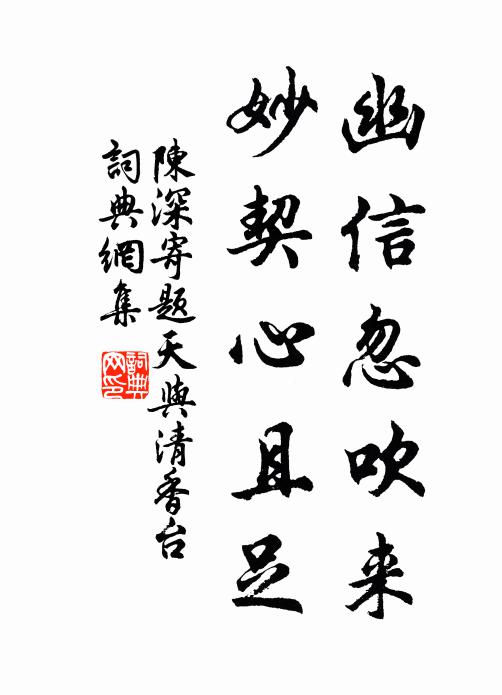 幽信忽吹来
妙契心且足
陳深寄題天與清香台
詞典網集
詞典网印